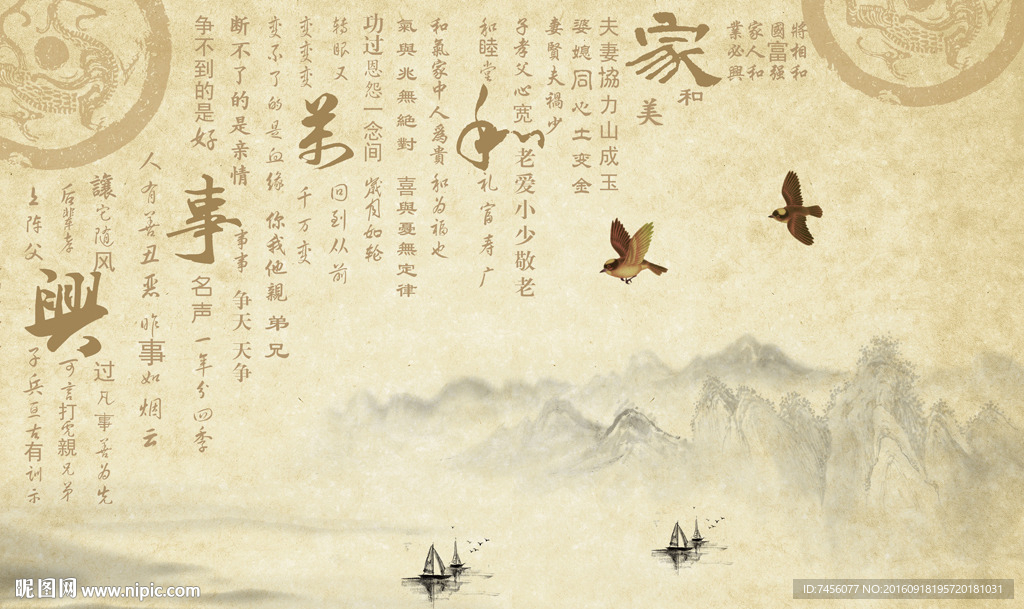 將相和
國富强
家人和
業必興
家
和
美
夫妻協力山成玉
婆媳同心土变金
妻賢夫禍少
子孝父心宽
和
老爱小少敬老
和睦堂
礼富寿广
和氣家中人爲貴和为福也
氣與兆無絶對喜與憂無定律
功过恩怨一念间歲月如轮
转眼又
回到从前
变变变
萬
千万变
变不了的是血缘你我他親弟兄
断不了的是亲情
事事争天天争
争不到的是好
事
名声一年分四季
人有善丑恶昨事如烟云
讓它随风
过凡事善为先
后輩孝
興
可言打虎親兄弟
上阵父
子兵亘古有训示
昵图网 www.nipic.com
ID:7456077 NO:20160918195720181031